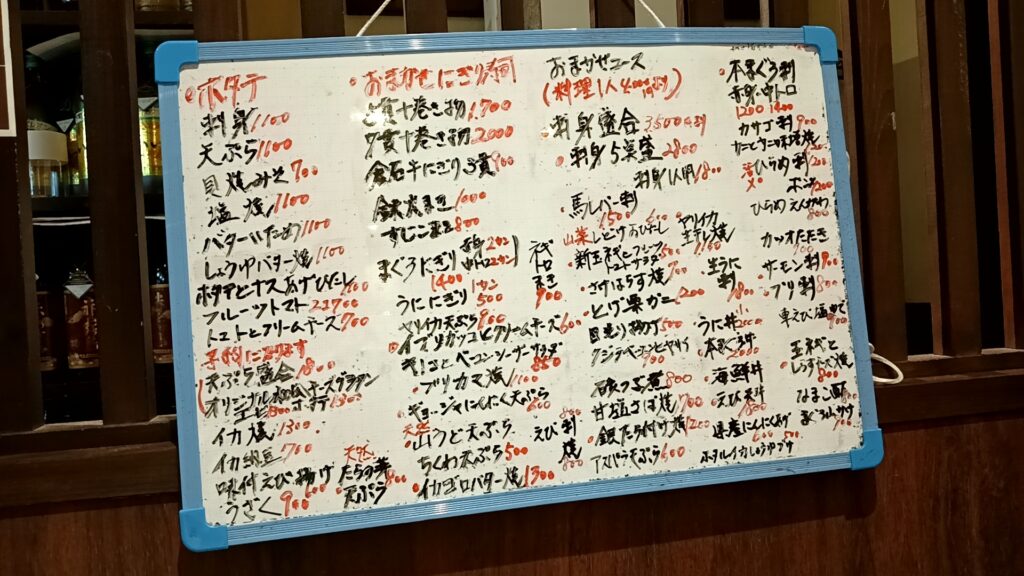 ホタテ
刺身 1100
天ぷら 1100
貝焼みそ 700
塩焼 1100
バターいため 1100
しょうゆバター焼 1100
ホタテとナスあげびたし
フルーツトマト
トマトとクリームチーズ 700
予約になります
天ぷら盛合 1800
オリジナル チーズグラタン
エビ 1800 ホタテ 1300
イカ焼 1300
イカ納豆 700
味付えび揚げ
うざく 900
天然
たらの芽 800
天ぷら
おまかせにぎり寿司
七貫十巻き物 1,700
9貫十巻き物 2,000
倉石牛にぎり3貫 900
鉄火まき 1000
すじこまき 800
まぐろにぎり
1400
うににぎり 1カン 500
ヤリイカ天ぷら 900
イブリガッコとクリームチーズ 600
ブリカマ焼 1100
ギョージャにんにく天ぷら 600
天然
山うど天ぷら
ちくわ天ぷら 500
イカゴロバター焼 1300
ネギ
トロ
まき
900
えび刺
焼 800
おまかせコース
(料理1人 4,000より)
刺身盛合 3,500より
刺身5点盛 2800
刺身1人用 1800
馬レバー刺
1500
山菜 しどけおひたし 600
新玉ネギとフルーツ
トマトサラダ 500
さけはらす焼 700
トゲ栗ガニ 1200
目光り揚げ 500
900
砂つぶ煮 800
甘塩さば焼 700
銀たら付け焼 1200
アスパラ天ぷら 600
ヤリイカ
生干し焼
1100
生うに
刺 1800
うに丼
本まぐろ丼 2000
海鮮丼
えび天丼 1800
県産にんにくあげ
600 500
ホタルイカしょうゆづけ
本まぐろ刺
赤身 中トロ
1200 1400
カサゴ刺 900
活〆 ひらめ刺 1200
ひらめえんがわ 800
カツオたたき 900
サーモン刺 900
ブリ刺 800
車えび塩焼 900
玉ネギと
しらす 焼 800
なまこ酢 700